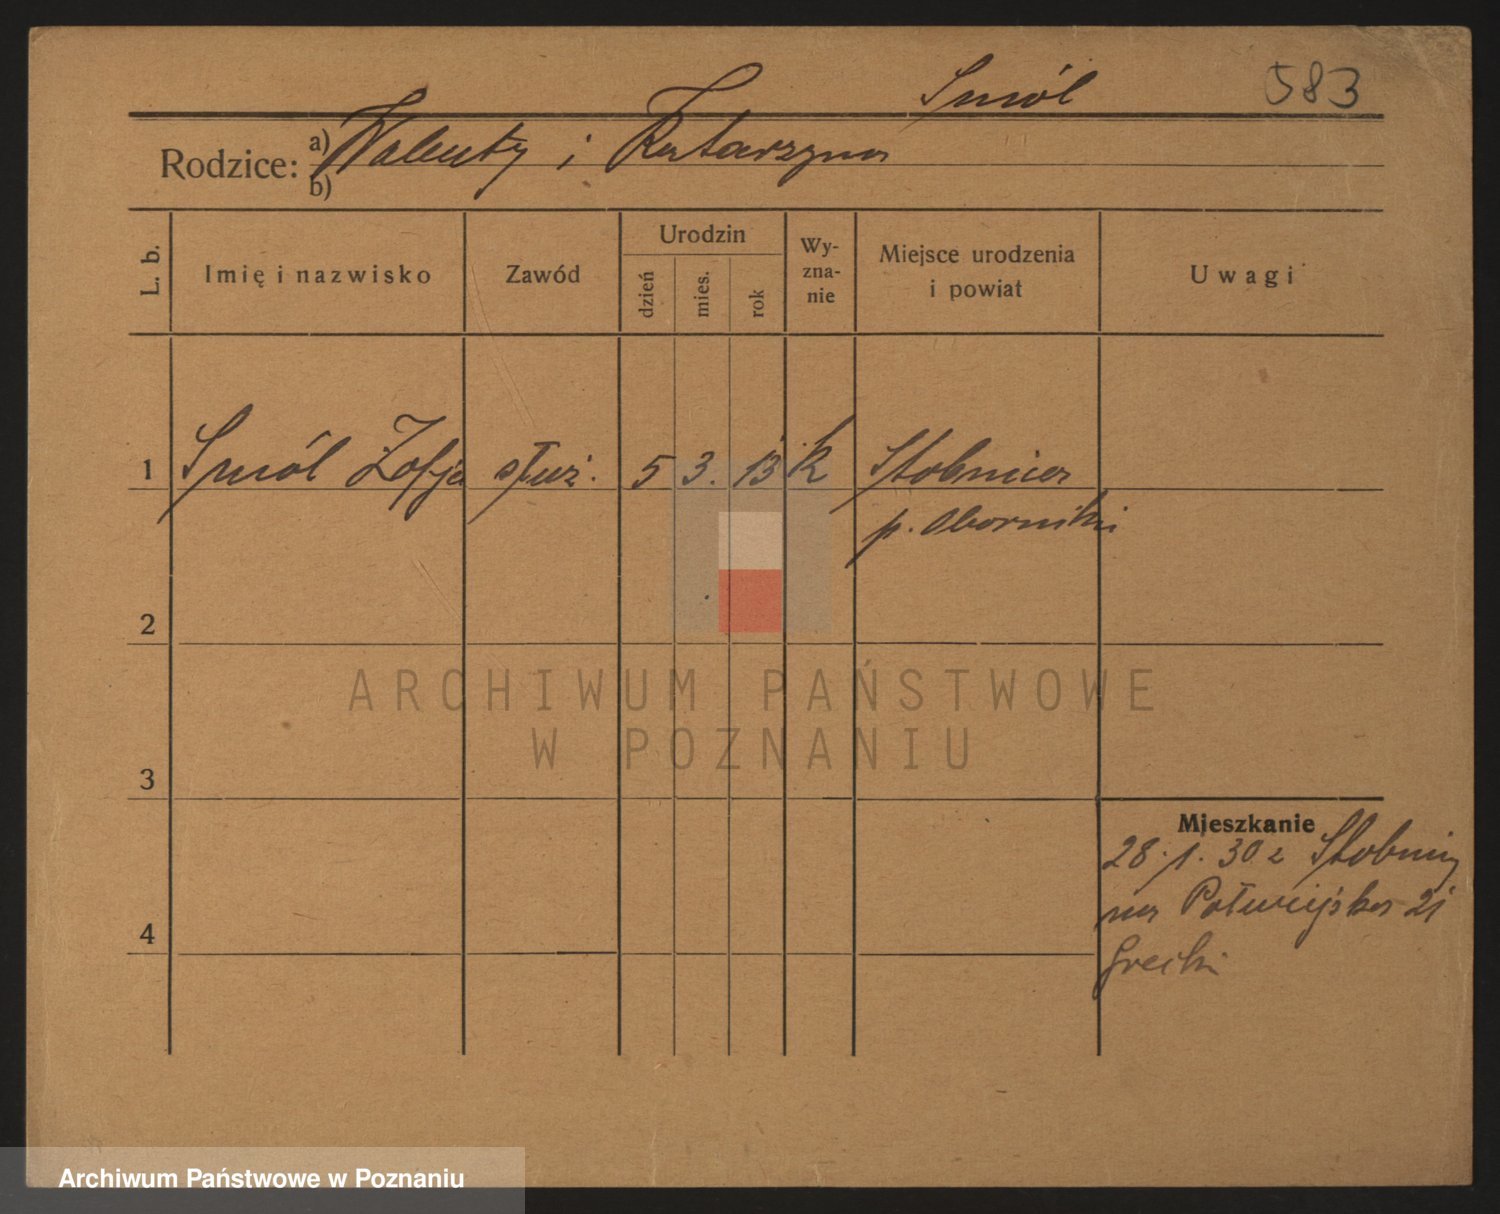 Smól
583
Rodzice: a) Walenty i Katarzyna
b)
L. b.
Imię i nazwisko
Zawód
Urodzin
dzień
mies.
rok
Wy-
zna-
nie
Miejsce urodzenia
i powiat
Uwagi
1 Smól Zofja służ. 5 3. 13 k Stobnica
p. Oborniki
2
3
4
Mieszkanie
28. 1. 30 z Stobnicy
na Półwiejska 21
ARCHIWUM PAŃSTWOWE
W POZNANIU
Archiwum Państwowe w Poznaniu